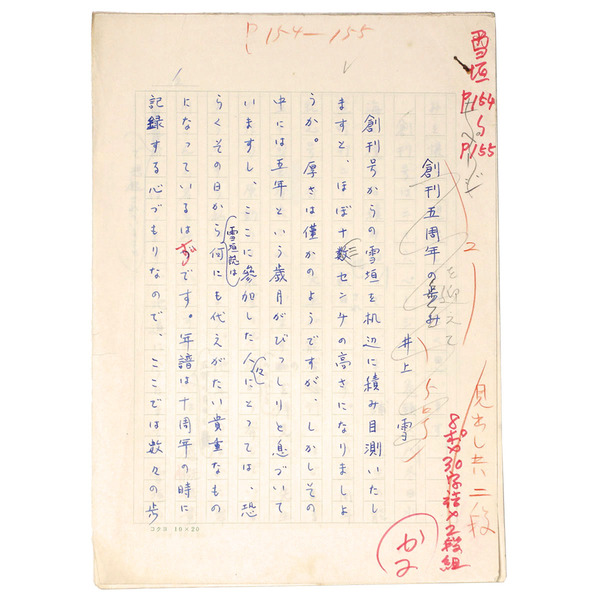 P154—155
雪垣
P154
〜
P155
創刊五周年の歩み
を迎えて
井上 雪
創刊号からの雪垣を机辺に積み目測いたし
ますと、ほぼ十数センチの高さになりましょ
うか。厚さは僅かのようですが、しかしその
中には五年という歳月がびっしりと息づいて
いますし、ここに参加した人々にとっては、恐
らくその日から雪垣誌は何にも代えがたい貴重なもの
になっているはずです。年譜は十周年の時に
記録する心づもりなので、ここでは数々の歩
見出し共二段
8ポ×30字詰×2段組
かみ
コクヨ 10×20